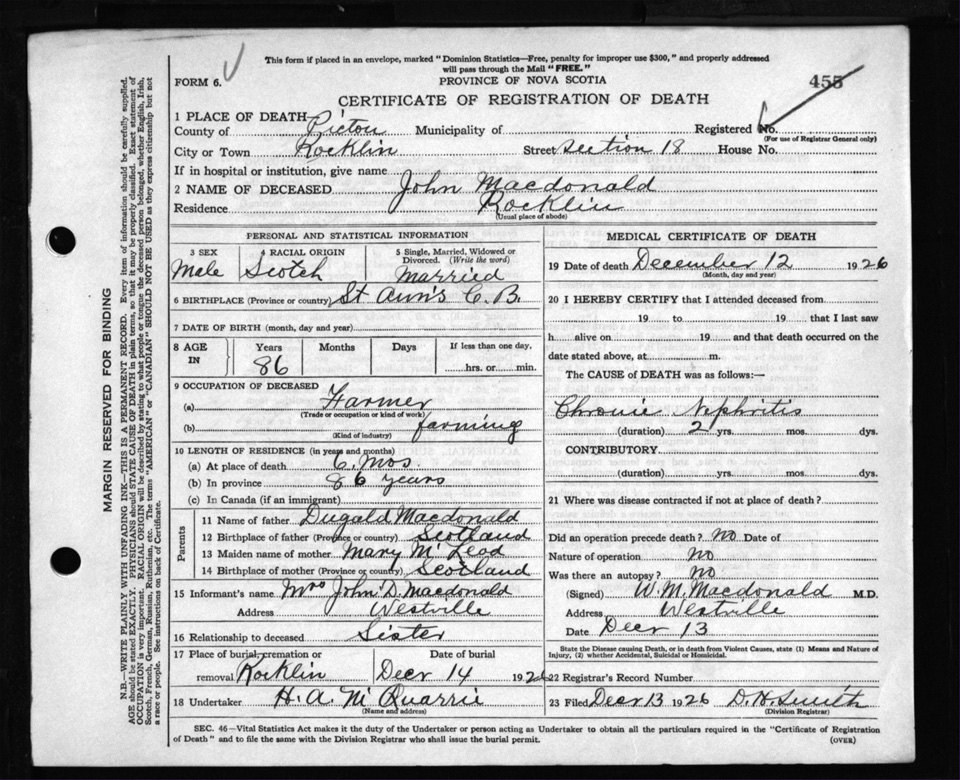 This form if placed in an envelope, marked "Dominion Statistics—Free, penalty for improper use $300," and properly addressed
will pass through the Mail "FREE."
FORM 6.
PROVINCE OF NOVA SCOTIA
455
CERTIFICATE OF REGISTRATION OF DEATH
1 PLACE OF DEATH
County of Pictou Municipality of Registered No.
(For use of Registrar General only)
City or Town Rocklin Street Section 18 House No.
If in hospital or institution, give name
2 NAME OF DECEASED John Macdonald
Residence Rocklin
(Usual place of abode)
PERSONAL AND STATISTICAL INFORMATION
3 SEX 4 RACIAL ORIGIN 5 Single, Married, Widowed or Divorced. (Write the word)
Male Scotch Married
6 BIRTHPLACE (Province or country) St Ann's C. B.
7 DATE OF BIRTH (month, day and year)
8 AGE IN Years Months Days If less than one day,
86 hrs. or min.
9 OCCUPATION OF DECEASED
(a) Farmer
(Trade or occupation or kind of work)
(b) farming
(Kind of industry)
10 LENGTH OF RESIDENCE (in years and months)
(a) At place of death 6 Mos.
(b) In province 86 years
(c) In Canada (if an immigrant)
Parents
11 Name of father Dugald Macdonald
12 Birthplace of father (Province or country) Scotland
13 Maiden name of mother Mary McLeod
14 Birthplace of mother (Province or country) Scotland
15 Informant's name Mrs John D. Macdonald
Address Westville
16 Relationship to deceased Sister
17 Place of burial, cremation or Date of burial
removal Rocklin Decr 14 1926
18 Undertaker H. A. McQuarrie
(Name and address)
MEDICAL CERTIFICATE OF DEATH
19 Date of death December 12 1926
(Month, day and year)
20 I HEREBY CERTIFY that I attended deceased from
19 to 19 that I last saw
h alive on 19 and that death occurred on the
date stated above, at m.
The CAUSE of DEATH was as follows:—
Chronic Nephritis
(duration) 2 yrs. mos. dys.
CONTRIBUTORY
(duration) yrs. mos. dys.
21 Where was disease contracted if not at place of death?
Did an operation precede death? No Date of
Nature of operation No
Was there an autopsy? No
(Signed) W. M. Macdonald M.D.
Address Westville
Date Decr 13
State the Disease causing Death, or in death from Violent Causes, state (1) Means and Nature of
Injury, (2) whether Accidental, Suicidal or Homicidal.
22 Registrar's Record Number
23 Filed Decr 13 1926 D. H. Smith
(Division Registrar)
SEC. 46—Vital Statistics Act makes it the duty of the Undertaker or person acting as Undertaker to obtain all the particulars required in the "Certificate of Registration
of Death" and to file the same with the Division Registrar who shall issue the burial permit.
(OVER)
MARGIN RESERVED FOR BINDING
N.B.—WRITE PLAINLY WITH UNFADING INK—THIS IS A PERMANENT RECORD. Every item of information should be carefully supplied.
AGE should be stated EXACTLY. PHYSICIANS should STATE CAUSE OF DEATH in plain terms, so that it may be properly classified. Exact statement of
OCCUPATION is very important. RACIAL ORIGIN will be described by stating to what people or tongue the deceased person belonged, whether English, Irish,
Scotch, French, German, Russian, Ruthenian, etc. The terms "AMERICAN" or "CANADIAN" SHOULD NOT BE USED as they express citizenship but not
a race or people. See instructions on back of Certificate.